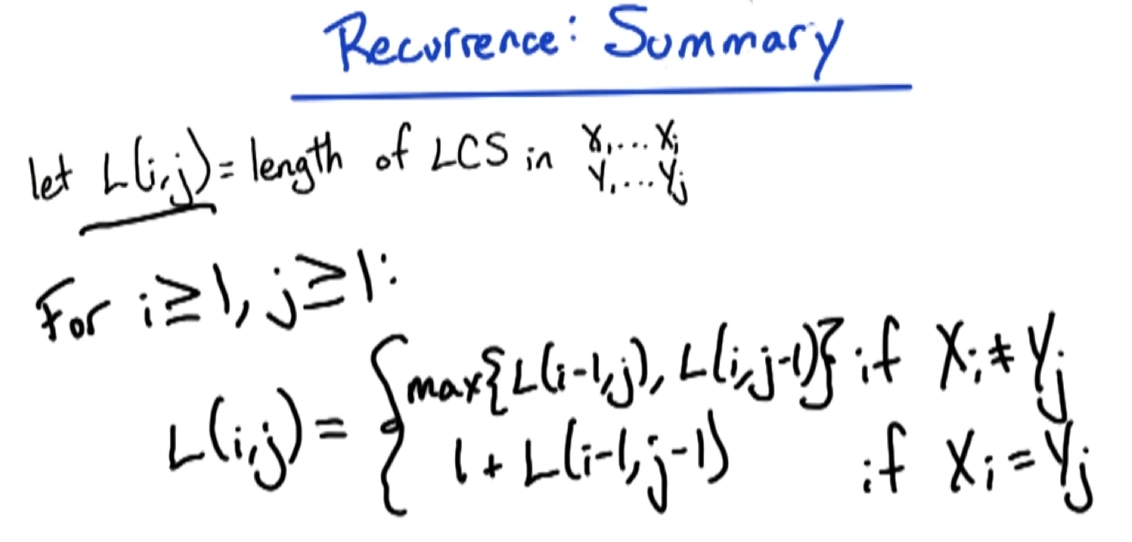 Recurrence: Summary
let L(i,j) = length of LCS in X₁...Xᵢ
Y₁...Yⱼ
For i≥1, j≥1:
L(i,j) = { max{L(i-1,j), L(i,j-1)} if Xᵢ ≠ Yⱼ
1 + L(i-1,j-1) if Xᵢ = Yⱼ